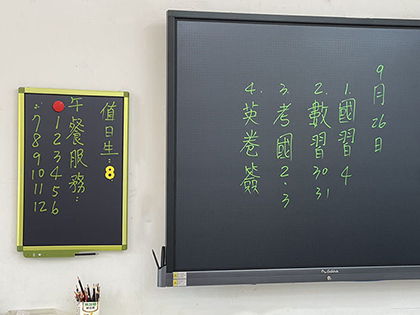 9月26日
1.國習4
2.數習30 31
3.考國2.3
4.英卷簽
值日生:8
午餐服務:
1 2 3 4 5 6
7 8 9 10 11 12